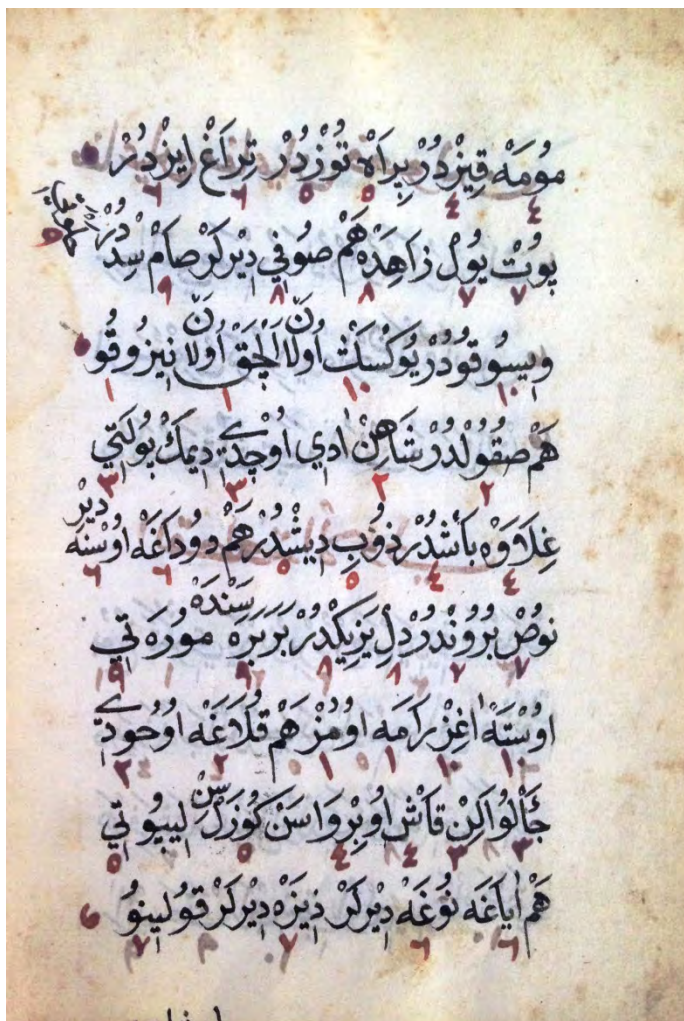 مُومَهْ قِيزْدُرْ بِرَاهْ تُوزْدُرْ تِرَاغْ اِيزْدُرْ
٤ ٤ ٥ ٥ ٦ ٦
پُوتْ يُولْ زَاهِدَهْ هَمْ صُوفِي دِيرْلَرْ صَامْ سِدُرْ
٧ ٧ ٨ ٨ ٩
وِيسُوقُودُرْ يُوكْسَكْ اُولَانْ اَلْچَقْ اُولَانْ نِيزُوقُو
١٠ ١٠ ١ ١
هَمْ صُقُولْدُرْ شَاهِنْ اَدِي اُوچْدِي دِيمَكْ پُولَتِي
٢ ٢ ٣ ٣
غِلَاوَهْ بَاشْدُرْ ذُوبِ دِيشْدُرْ هَمْ دُودَاغَهْ اُوسْنَهْ دِيرْ
٤ ٤ ٥ ٥ ٦ ٦
نُوصْ بُرُونْدُرْ دِلْ يَزِيكْدُرْ بَرَبَرَهْ سَنْدَهْ مُورَهَ تِي
٧ ٧ ٨ ٨ ٩ ٩
اُوسْتَهْ اَغِزْ رَامَه اُومُزْ هَمْ قُلَاغَه اُوحُو دِي
١٠ ١٠ ١ ١ ٢ ٢
چَالُو اَلِنْ قَاشْ اُوبِرْوَا سَنْ كُوزَلْسِنْ لِيپُو تِي
٣ ٣ ٤ ٤ ٥ ٥
هَمْ اَيَاغَه نُوغَهْ دِيرْلَرْ ذِيزَهْ دِيرْلَرْ قُولِينُو
٦ ٦ ٧ ٧